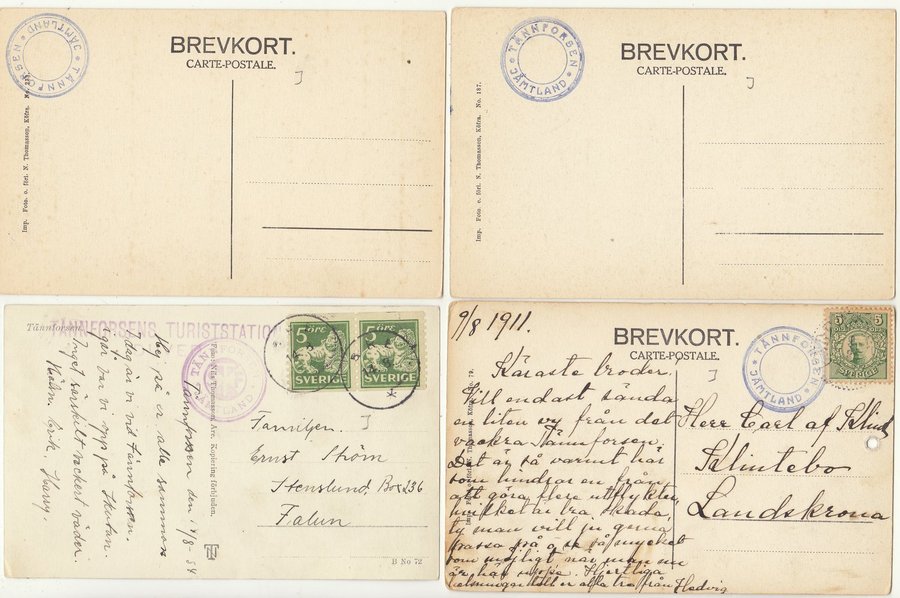 TÄNNFORSEN
JÄMTLAND
BREVKORT.
CARTE-POSTALE.
Imp. Foto. o. förl. N. Thomasson, Köfra.
TÄNNFORSEN
JÄMTLAND
BREVKORT.
CARTE-POSTALE.
Imp. Foto. o. förl. N. Thomasson, Köfra. No. 187.
Tännforsen.
TÄNNFORSENS TURISTSTATION
Tännforsen den 14/8 - 34
Hej på er alla samman
Idag är vi vid Tännforsen,
igår var vi upp på Åreskutan.
Inget särskilt vackert väder.
Hälsn. Erik. Harry.
Foto: Nils Thomasson Åre. Kopiering förbjuden.
5 ÖRE
SVERIGE
5 ÖRE
SVERIGE
Familjen
Ernst Ström
Stenslund, Box 236
Falun
NT
B No 72
9/8 1911.
BREVKORT.
CARTE-POSTALE.
TÄNNFORSEN
JÄMTLAND
5 5
SVERIGE
Käraste broder.
Vill endast sända
en liten vy från det
vackra Tännforsen.
Det är så varmt här
som hindrar en från
att göra flere utflykter,
hvilket är bra skada,
ty man vill ju gerna
passa på o. se så mycket
som möjligt när man nu
är här uppe. Hjertliga
helsningar från Hedvig
Herr Carl af Klint
Klintebo
Landskrona